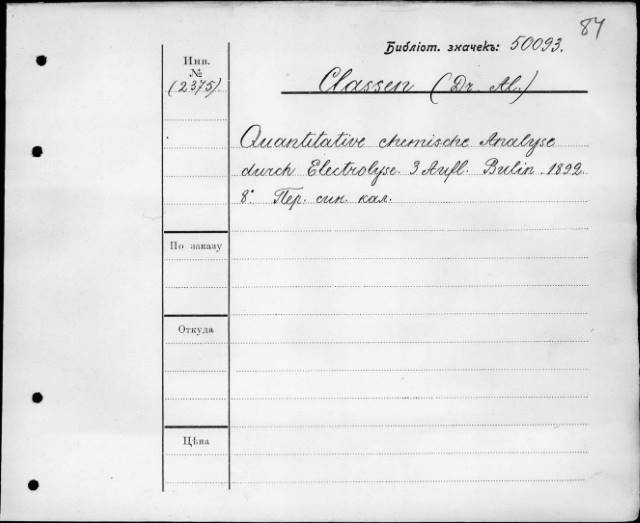 84
Библіот. значекъ: 50093.
Инв.
№
(2375)
Classen (Dr. Al.)
Quantitative chemische Analyse
durch Electrolyse. 3 Aufl. Berlin. 1892.
8° Пер. син. кал.
По заказу
Откуда
Цѣна